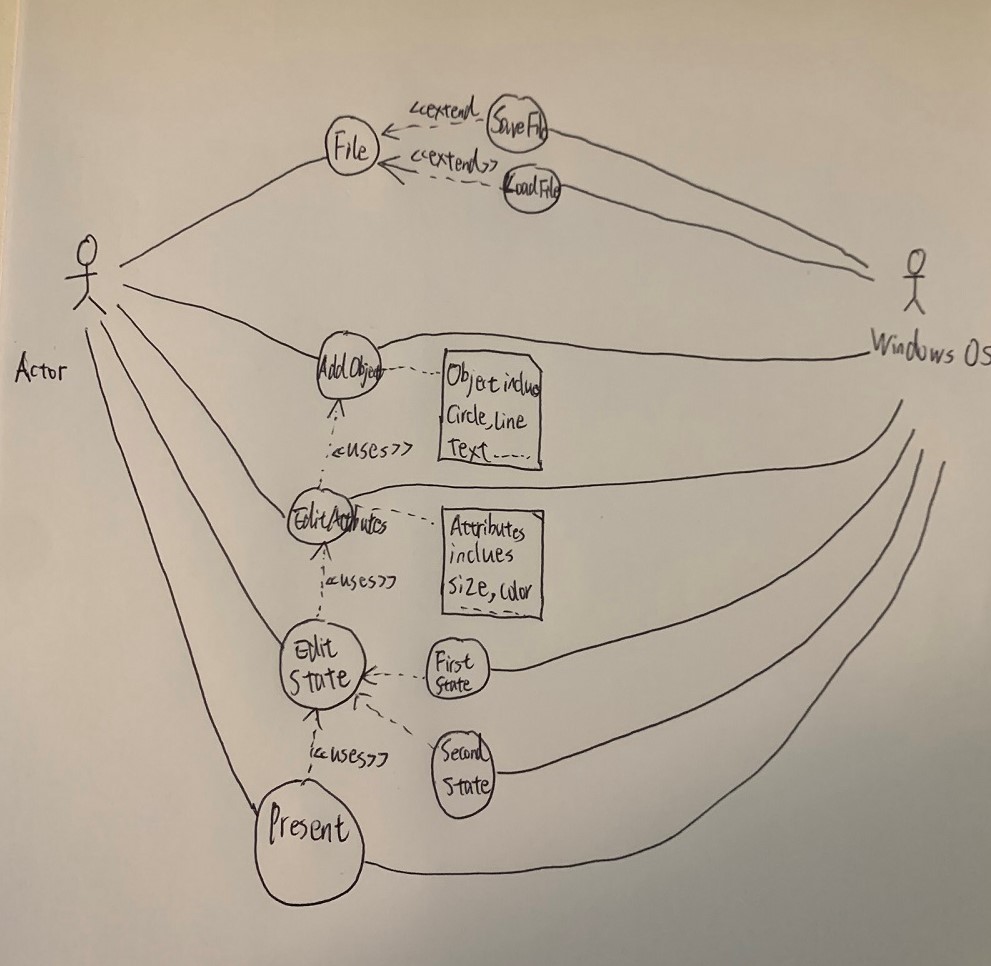 <<extend
Save File
File
<<extend>>
Load File
Windows OS
Actor
Add Object
Object inclue
Circle, line
Text.....
<<uses>>
Edit Attributes
Attributes
inclues
size, color
<<uses>>
Edit
State
First
State
<<uses>>
Second
State
Present